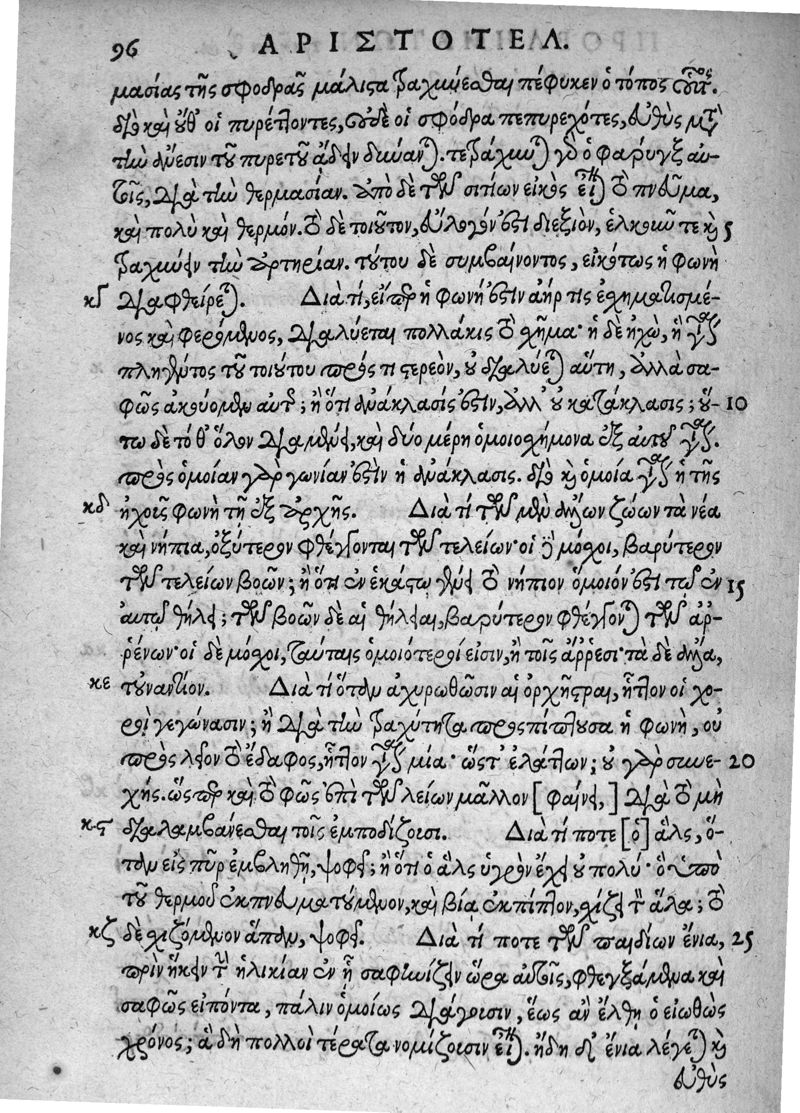 96 ΑΡΙΣΤΟΤΕΛ.
μασίας τῆς σφοδρᾶς μάλιστα τραχύνεσθαι πέφυκεν ὁ τόπος οὗτος.
διὸ καὶ οὔθ' οἱ πυρέττοντες, οὐδὲ οἱ σφόδρα πεπυρεχότες, εὐθὺς μετὰ
τὴν ἄνεσιν τοῦ πυρετοῦ ᾄδειν δύνανται. τετράχυνται γὰρ ὁ φάρυγξ αὐ-
τοῖς, διὰ τὴν θερμασίαν. ἀπὸ δὲ τῶν σιτίων εἰκὸς εἶναι τὸ πνεῦμα,
καὶ πολὺ καὶ θερμόν. τὸ δὲ τοιοῦτον, εὔλογόν ἐστι διεξιὸν, ἑλκοῦν τε καὶ 5
τραχύνειν τὴν ἀρτηρίαν. τούτου δὲ συμβαίνοντος, εἰκότως ἡ φωνὴ
κγ διαφθείρεται. Διὰ τί, εἴπερ ἡ φωνή ἐστιν ἀήρ τις ἐσχηματισμέ-
νος καὶ φερόμενος, διαλύεται πολλάκις τὸ σχῆμα· ἡ δὲ ἠχὼ, ἣ γίνεται
πληγέντος τοῦ τοιούτου πρός τι στερεὸν, οὐ διαλύεται αὕτη, ἀλλὰ σα-
φῶς ἀκούομεν αὐτῆς; ἢ ὅτι ἀνάκλασίς ἐστιν, ἀλλ' οὐ κατάκλασις; οὕ- 10
τω δὲ τό θ' ὅλον διαμένει, καὶ δύο μέρη ὁμοιοσχήμονα ἐξ αὐτοῦ γίνεται.
πρὸς ὁμοίαν γὰρ γωνίαν ἐστὶν ἡ ἀνάκλασις. διὸ καὶ ὁμοία γίνεται ἡ τῆς
κδ ἠχοῦς φωνὴ τῇ ἐξ ἀρχῆς. Διὰ τί τῶν μὲν ἄλλων ζώων τὰ νέα
καὶ νήπια, ὀξύτερον φθέγγονται τῶν τελείων· οἱ δὲ μόσχοι, βαρύτερον
τῶν τελείων βοῶν; ἢ ὅτι ἐν ἑκάστῳ γένει τὸ νήπιον ὅμοιόν ἐστι τῷ ἐν 15
αὐτῷ θήλει; τῶν βοῶν δὲ αἱ θήλειαι, βαρύτερον φθέγγονται τῶν ἀρ-
ρένων· οἱ δὲ μόσχοι, ταύταις ὁμοιότεροί εἰσιν, ἢ τοῖς ἄρρεσι· τὰ δὲ ἄλλα,
κε τοὐναντίον. Διὰ τί ὅταν ἀχυρωθῶσιν αἱ ὀρχῆστραι, ἧττον οἱ χο-
ροὶ γεγώνασιν; ἢ διὰ τὴν τραχύτητα προσπίπτουσα ἡ φωνὴ, οὐ
πρὸς λεῖον τὸ ἔδαφος, ἧττον γίνεται μία· ὥστ' ἐλάττων; οὐ γὰρ συνε- 20
χής. ὥσπερ καὶ τὸ φῶς ἐπὶ τῶν λείων μᾶλλον [φαίνει,] διὰ τὸ μὴ
κϛ διαλαμβάνεσθαι τοῖς ἐμποδίζουσι. Διὰ τί ποτε [ὁ] ἅλς, ὅ-
ταν εἰς πῦρ ἐμβληθῇ, ψοφεῖ; ἢ ὅτι ὁ ἅλς ὑγρὸν ἔχει οὐ πολύ· ὃ ὑπὸ
τοῦ θερμοῦ ἐκπνευματούμενον, καὶ βίᾳ ἐκπίπτον, σχίζει τὸν ἅλα; τὸ
κζ δὲ σχιζόμενον ἅπαν, ψοφεῖ. Διὰ τί ποτε τῶν παιδίων ἔνια, 25
πρὶν ἥκειν τὴν ἡλικίαν ἐν ᾗ σαφηνίζειν ὥρα αὐτοῖς, φθεγξάμενα καὶ
σαφῶς εἰπόντα, πάλιν ὁμοίως διάγουσιν, ἕως ἂν ἔλθῃ ὁ εἰωθὼς
χρόνος; ἃ δὴ πολλοὶ τέρατα νομίζουσιν εἶναι. ἤδη δ' ἔνια λέγεται καὶ
εὐθὺς